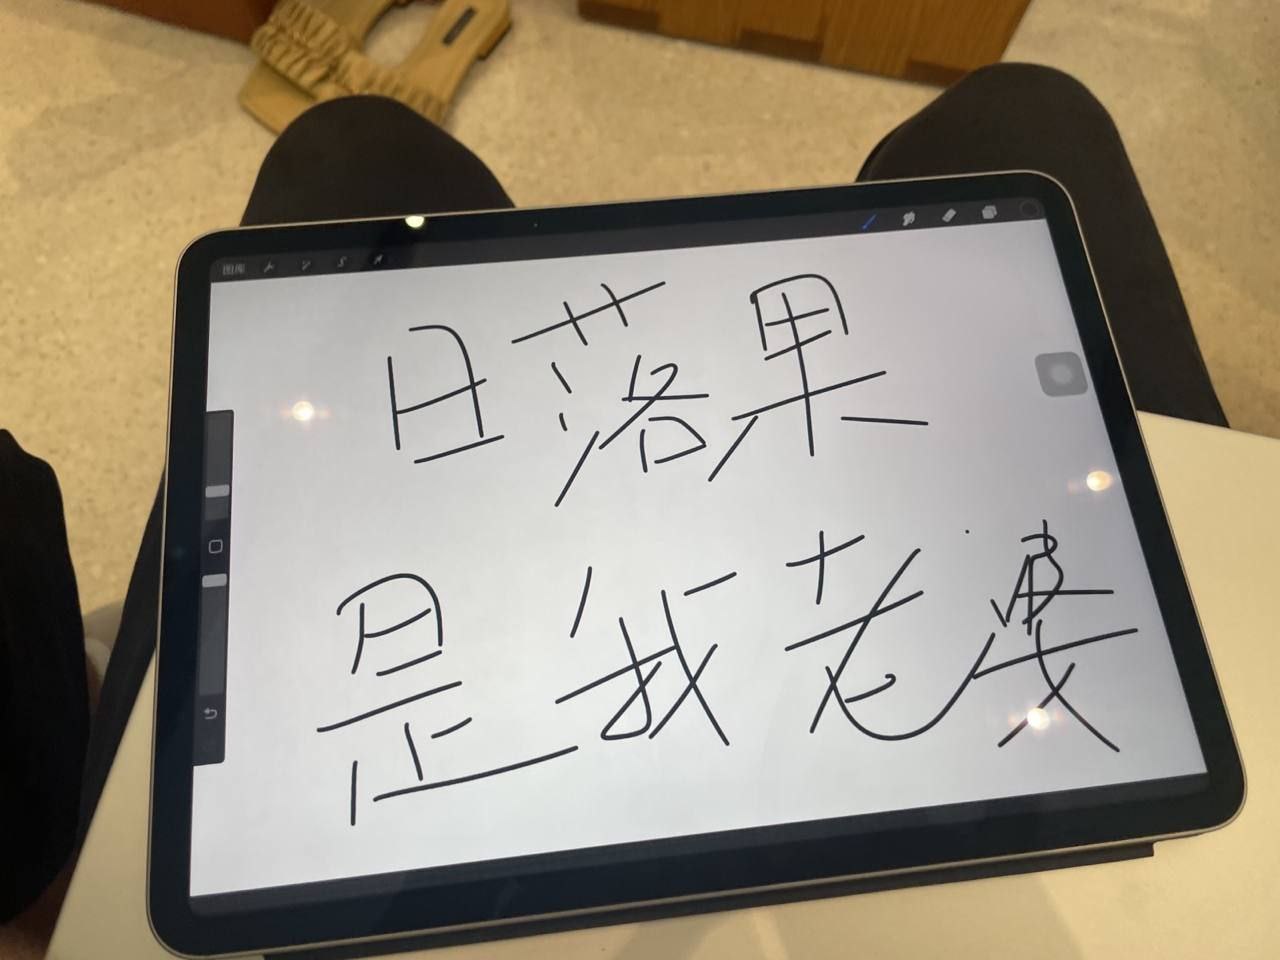 图库
日落果
是我老婆